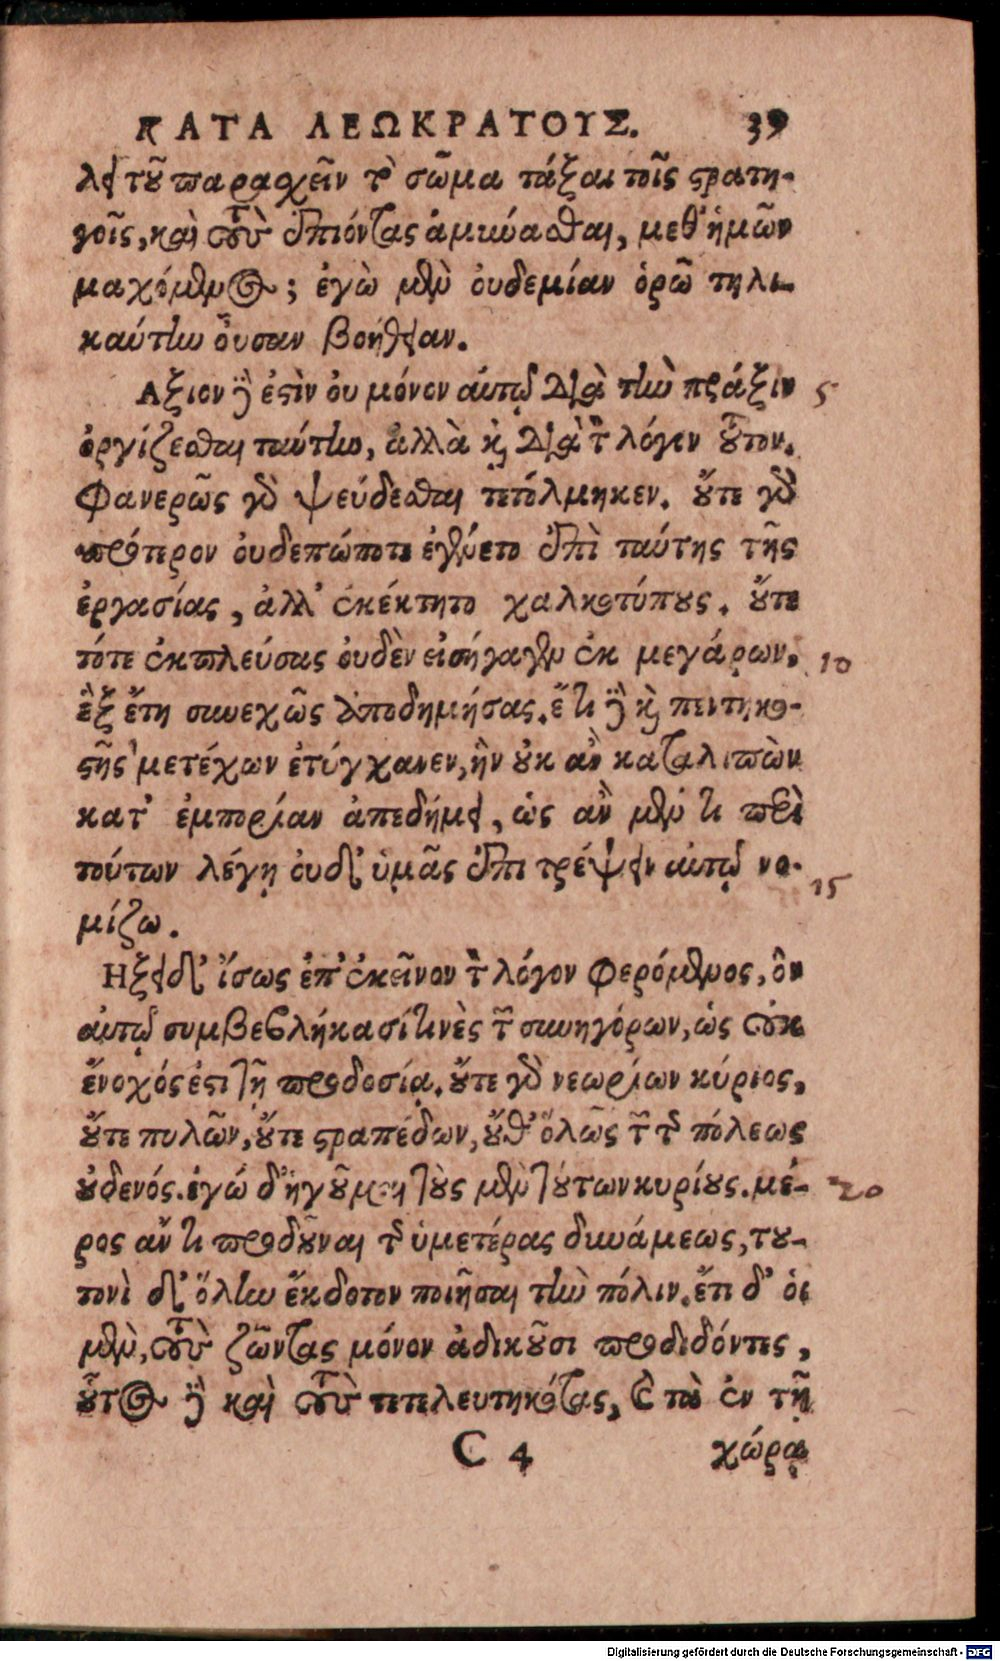 ΚΑΤΑ ΛΕΩΚΡΑΤΟΥΣ. 39
λει τοῦ παραχεῖν τὸ σῶμα τάξαι τοῖς στρατη-
γοῖς, καὶ τοὺς ἐπιόντας ἀμιύασθαι, μεθ' ἡμῶν
μαχόμενος; ἐγὼ μὲν οὐδεμίαν ὁρῶ τηλι-
καύτην οὖσαν βοήθειαν.
Αξιον δὲ ἐστὶν οὐ μόνον αὐτῷ διὰ τὴν πρᾶξιν 5
ὀργίζεσθαι ταύτην, ἀλλὰ καὶ διὰ τὸν λόγον τοῦτον.
Φανερῶς γὰρ ψεύδεσθαι τετόλμηκεν. οὔτε γὰρ
πρότερον οὐδεπώποτε ἐγένετο ἐπὶ ταύτης τῆς
ἐργασίας, ἀλλ' ἐκέκτητο χαλκοτύπους. οὔτε
τότε ἐκπλεύσας οὐδὲν εἰσήγαγεν ἐκ μεγάρων. 10
ἓξ ἔτη συνεχῶς ἀποδημήσας. ἔτι δὲ καὶ πεντηκο-
στῆς μετέχων ἐτύγχανεν, ἣν οὐκ ἂν καταλιπὼν
κατ' ἐμπορίαν ἀπεδήμει, ὡς ἂν μέν τι περὶ
τούτων λέγῃ οὐδ' ὑμᾶς ἐπιτρέψειν αὐτῷ νο-
μίζω. 15
Ηξει δ' ἴσως ἐπ' ἐκεῖνον τὸν λόγον φερόμενος, ὃν
αὐτῷ συμβεβλήκασί τινὲς τῶν συνηγόρων, ὡς οὐκ
ἔνοχός ἐστι τῇ προδοσίᾳ. οὔτε γὰρ νεωρίων κύριος,
οὔτε πυλῶν, οὔτε στραπέδων, οὔθ' ὅλως τῶν τῆς πόλεως
οὐδενός. ἐγώ δ' ἡγοῦμαι τοὺς μὲν τούτων κυρίους. μέ- 20
ρος ἄν τι προδοῦναι τῆς ὑμετέρας δυνάμεως, του-
τονὶ δ' ὅλην ἔκδοτον ποιῆσαι τὴν πόλιν. ἔτι δ' οἱ
μὲν, τοὺς ζῶντας μόνον ἀδικοῦσι προδιδόντες,
οὗτος δὲ καὶ τοὺς τετελευτηκότας, καὶ τὰ ἐν τῇ
C 4 χώρᾳ
Digitalisierung gefördert durch die Deutsche Forschungsgemeinschaft - DFG